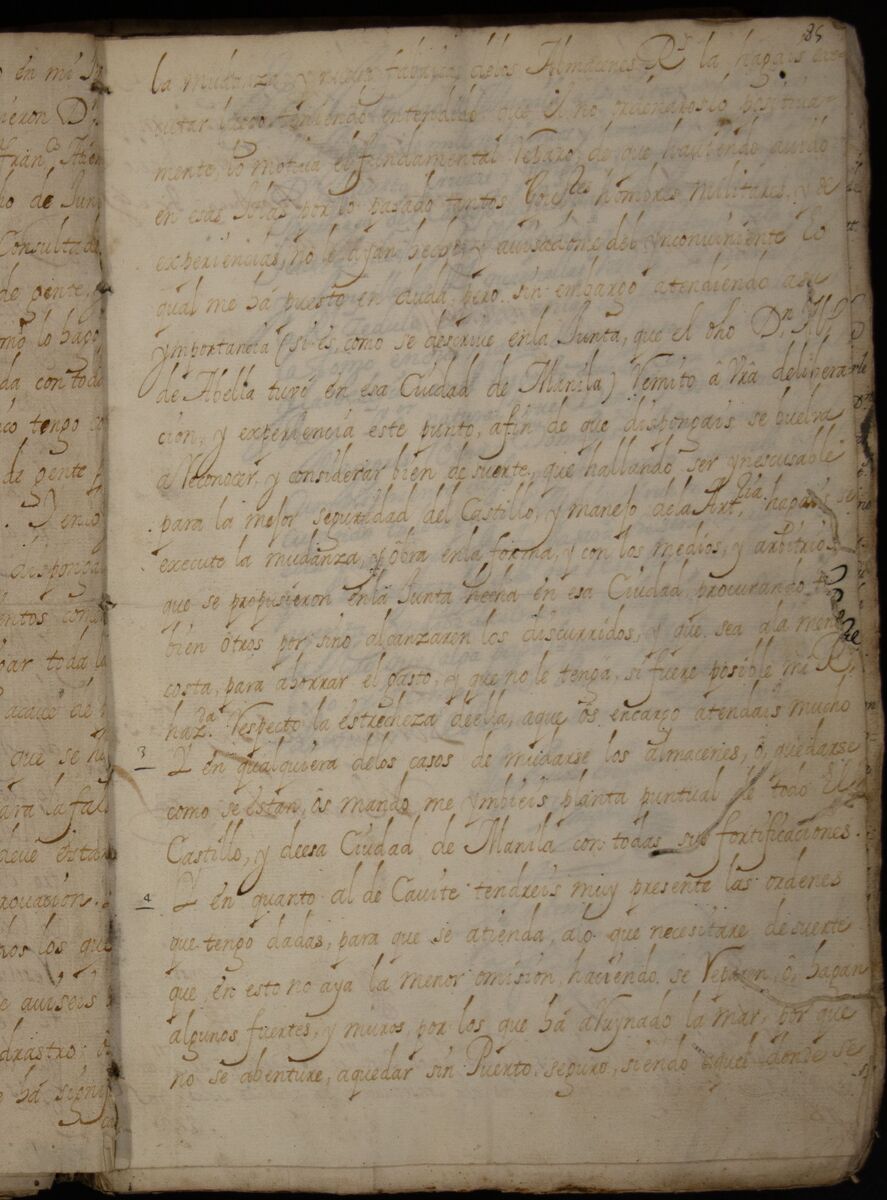 85
la mudanza, y nueva fabrica delos Almacenes R.s la hagais exe-
cutar luego teniendo entendido que el no ordenaroslo positiuar
mente, lo motiua el fundamental Reparo, de que hauiendo auido
en esas Islas por lo pasado tantos hombres militares, y de
experiencias, no le ayan hecho y auisadome del ynconuiniente Lo
qual me há puesto en duda, pero sin embargo atendiendo asu
ymportancia (si es, como se descriue enla Junta, que el dho D.n
de Abella tuvo en esa Ciudad de Manila) Remito â vrâ delibera
cion, y experiencia este punto, afin de que dispongais se buelva
a Reconocer y considerar bien de suerte, que hallando ser ynescusable
para la mejor seguridad del Castillo, y manejo dela Art.ria hagais se
execute la mudanza, y obra enla forma, y con los medios, y arbitrios
que se propusieron enla Junta hecha en esa Ciudad, procurando
bien otros por sino alcanzaren los discurridos, y que sea ala menor
costa, para ahorrar el gasto, y que no le tenga, si fuere posible mi R.l
haz.da Respecto la estrecheza deella, aque ôs encargo atendais mucho
3 Y en qualquiera delos casos de mudarse los almacenes, ô, quedarse
como se estan, ôs mando me ymbieis planta puntual de todo el
Castillo, y deesa Ciudad de Manila con todas sus fortificaciones.
4 Y en quanto al de Cauite tendreis muy presente las ordenes
que tengo dadas, para que se atienda, alo que necesitare desuerte
que, en esto no aya la menor omision, haciendo se Reparen, ô, hagan
algunos fuertes, y muros, por los que há aRuynado la mar, por que
no se abenture, aquedar sin Puerto seguro, siendo aquel donde se